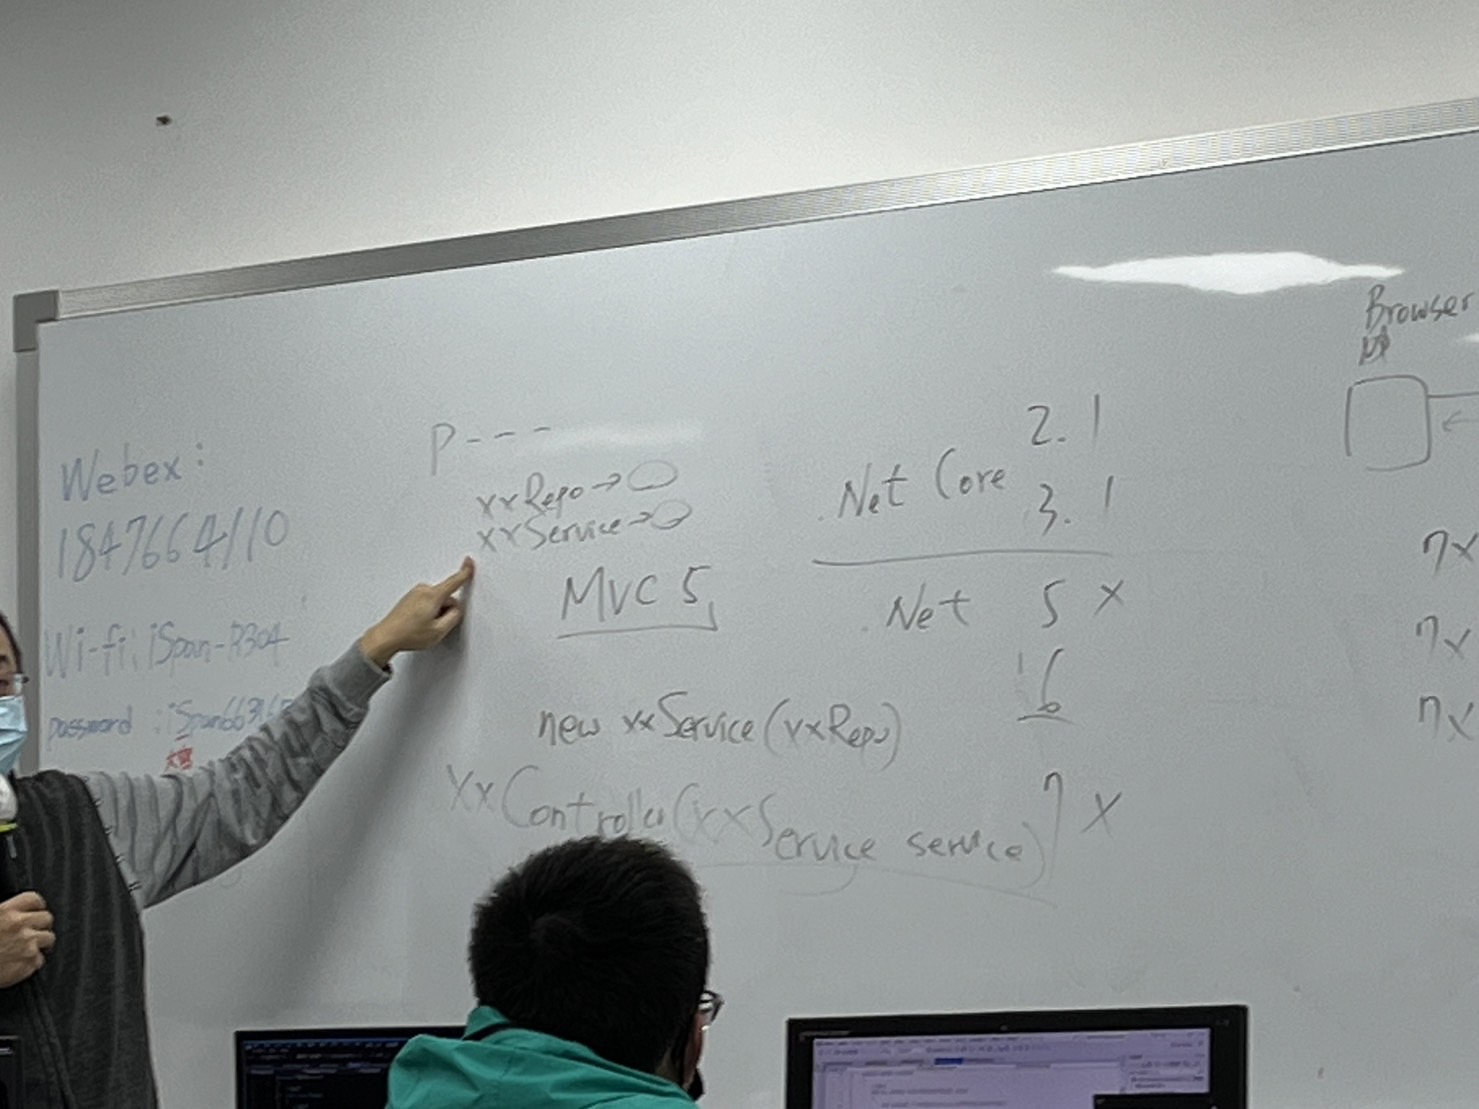 Webex:
1847664110
Wi-fi: iSpan-R304
password :
大寫
P---
xxRepo→
xxService→
MVC 5
new xxService(xxRepo)
xxController(xxService service)
.Net Core 2.1
3.1
.Net 5 x
6
7 x
Browser
7x
7x
7x